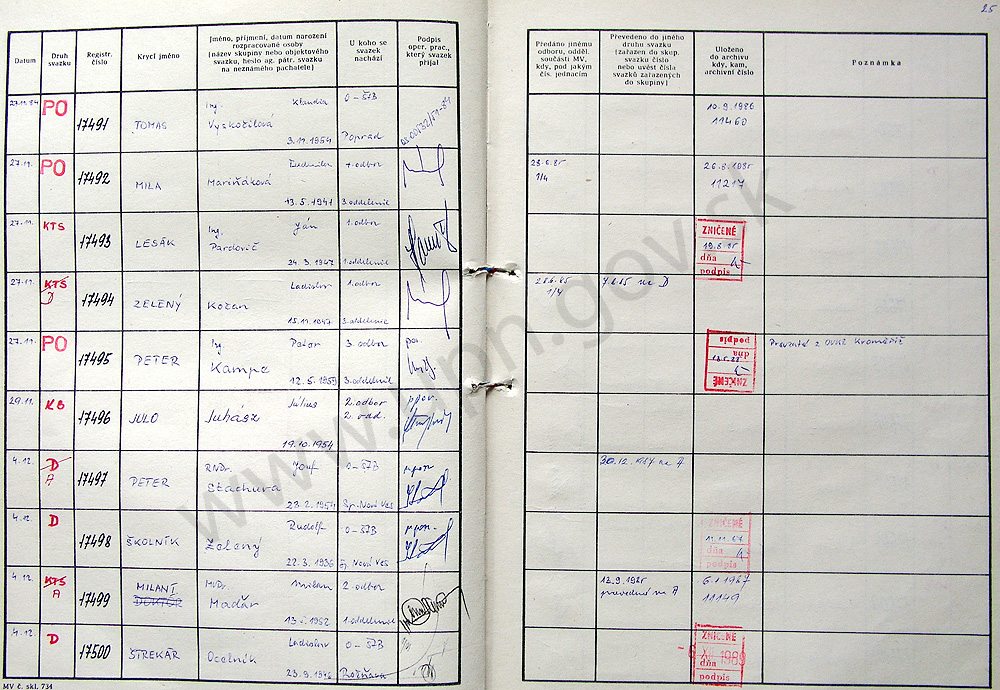 25
Datum
Druh svazku
Registr. číslo
Krycí jméno
Jméno, příjmení, datum narození rozpracované osoby (název skupiny nebo objektového svazku, heslo ag. pátr. svazku na neznámého pachatele)
U koho se svazek nachází
Podpis oper. prac., který svazek přijal
Předáno jinému odboru, odděl. součásti MV, kdy, pod jakým čís. jednacím
Převedeno do jiného druhu svazku (zařazen do skup. svazku číslo nebo uvést čísla svazků zařazených do skupiny)
Uloženo do archivu kdy, kam, archivní číslo
Poznámka
27.11.84 PO 17491 TOMAS Ing. Klaudia Vyskočilová 3.11.1954 O-ŠTB Poprad
10.9.1986 11460
27.11. PO 17492 MILA Ludmila Mariňáková 13.5.1941 1. odbor 3. oddelenie
1/4 11217
27.11. KTS 17493 LESÁK Ing. Ján Pardovič 24.3.1947 1. odbor 1. oddelenie
ZNIČENÉ dňa podpis
27.11. KTS D 17494 ZELENÝ Ladislav Kožan 15.11.1947 1. odbor 3. oddelenie
1/4 na D
27.11. PO 17495 PETER Ing. Peter Kampe 12.5.1959 3. odbor 3. oddelenie
ZNIČENÉ dňa podpis
29.11. KB 17496 JULO Július Juhász 19.10.1954 2. odbor
4.12. D A 17497 PETER RNDr. Jozef Stachura 23.2.1954 O-ŠTB Sp. Nová Ves
30.12.1987 na A
4.12. D 17498 ŠKOLNÍK Rudolf Želený 22.3.1936 O-ŠTB Sp. Nová Ves
ZNIČENÉ dňa podpis
4.12. KTS A 17499 MILAN I DOKTOR MVDr. Milan Maďar 13.5.1952 2. odbor 1. oddelenie
prevedený na A
6.1.1987 11149
4.12. D 17500 ŠTREKÁR Ladislav Ocelník 23.9.1946 O-ŠTB Rožňava
ZNIČENÉ 1989 dňa podpis
MV č. skl. 734
www.upn.gov.sk